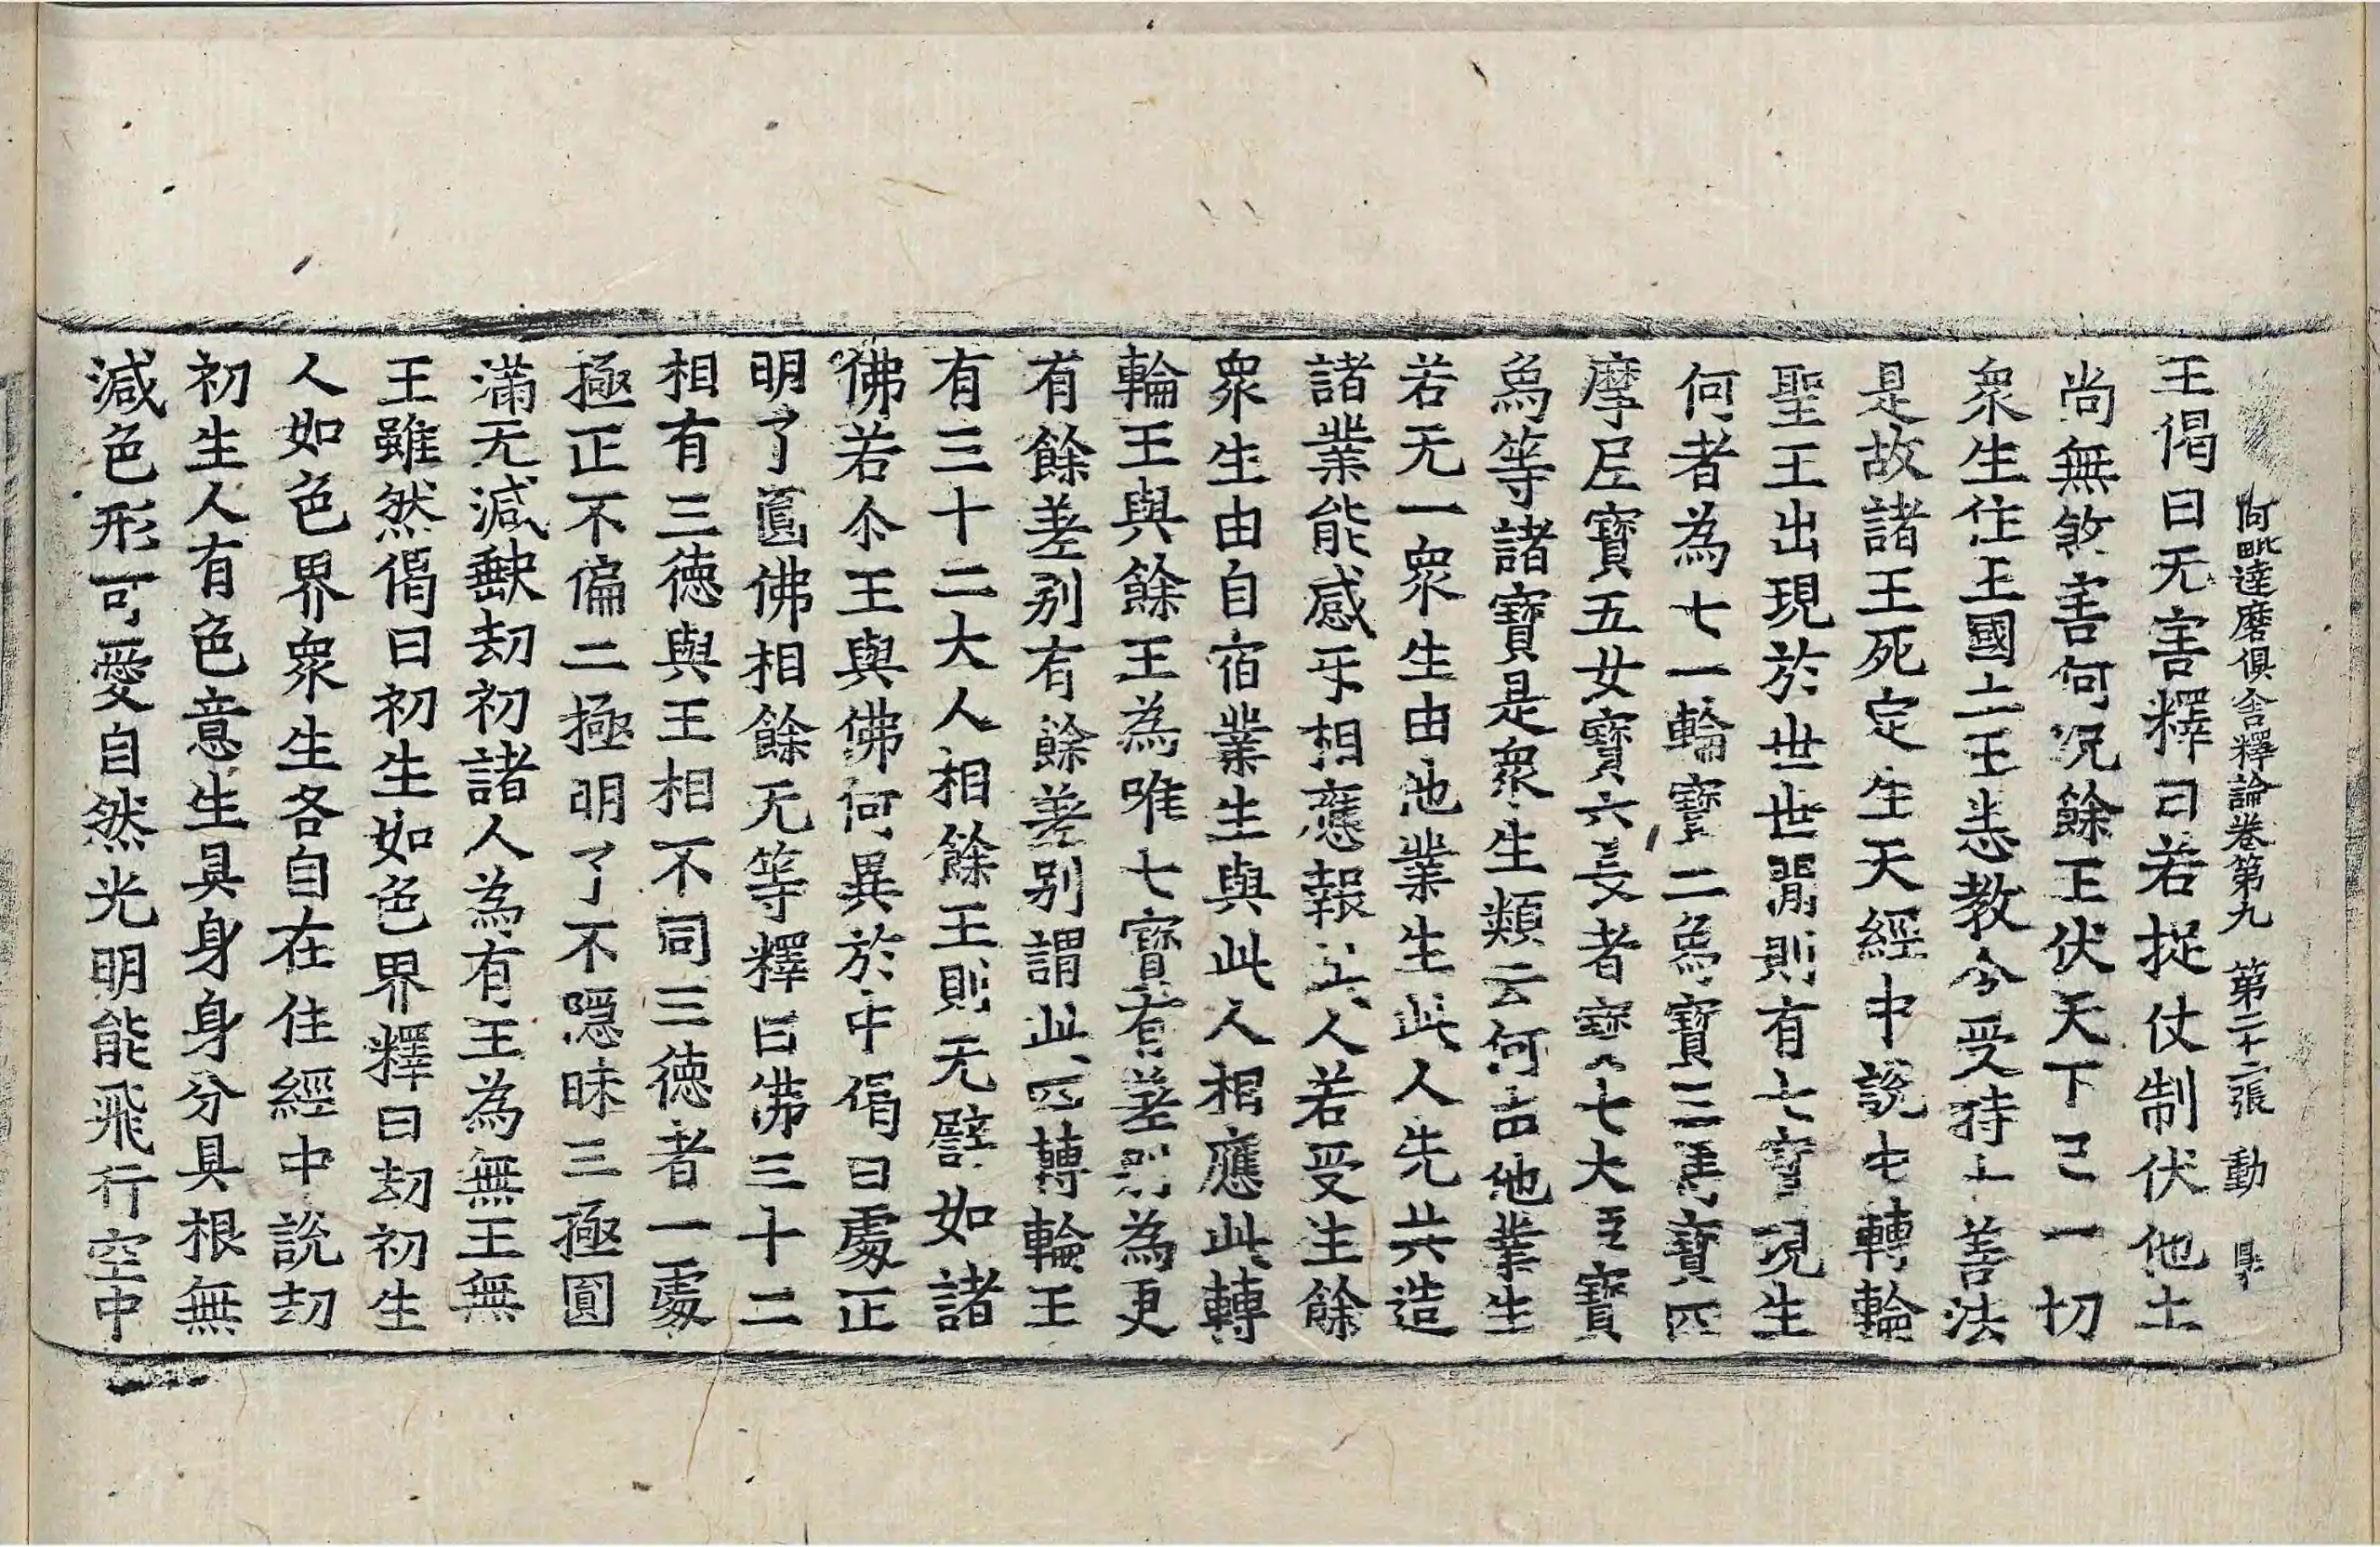 阿毗達磨俱舍釋論卷第九 第二十二張 動
王偈曰无害釋曰若捉仗制伏他土
尚無煞害何況餘王伏天下已一切
衆生住王國土王恙教令受持十善法
是故諸王死定生天經中說由轉輪
聖王出現於世世間則有七寶現生
何者為七一輪寶二爲寶三馬寶四
摩尼寶五女寶六長者寶七大臣寶
爲等諸寶是衆生類云何由他業生
若无一衆生由他業生此人先共造
諸業能感乐相應報此人若受生餘
衆生由自宿業生與此人相應此轉
輪王與餘王為唯七寶有差別為更
有餘差別有餘差別謂此四轉輪王
有三十二大人相餘王則无譬如諸
佛若尒王與佛何異於中偈曰處正
明了圓佛相餘无等釋曰佛三十二
相有三德與王相不同三德者一處
極正不偏二極明了不隱昧三極圓
滿无減缺劫初諸人為有王為無王無
王雖然偈曰初生如色界釋曰劫初生
人如色界衆生各自在住經中說劫
初生人有色意生具身身分具根無
減色形可愛自然光明能飛行空中